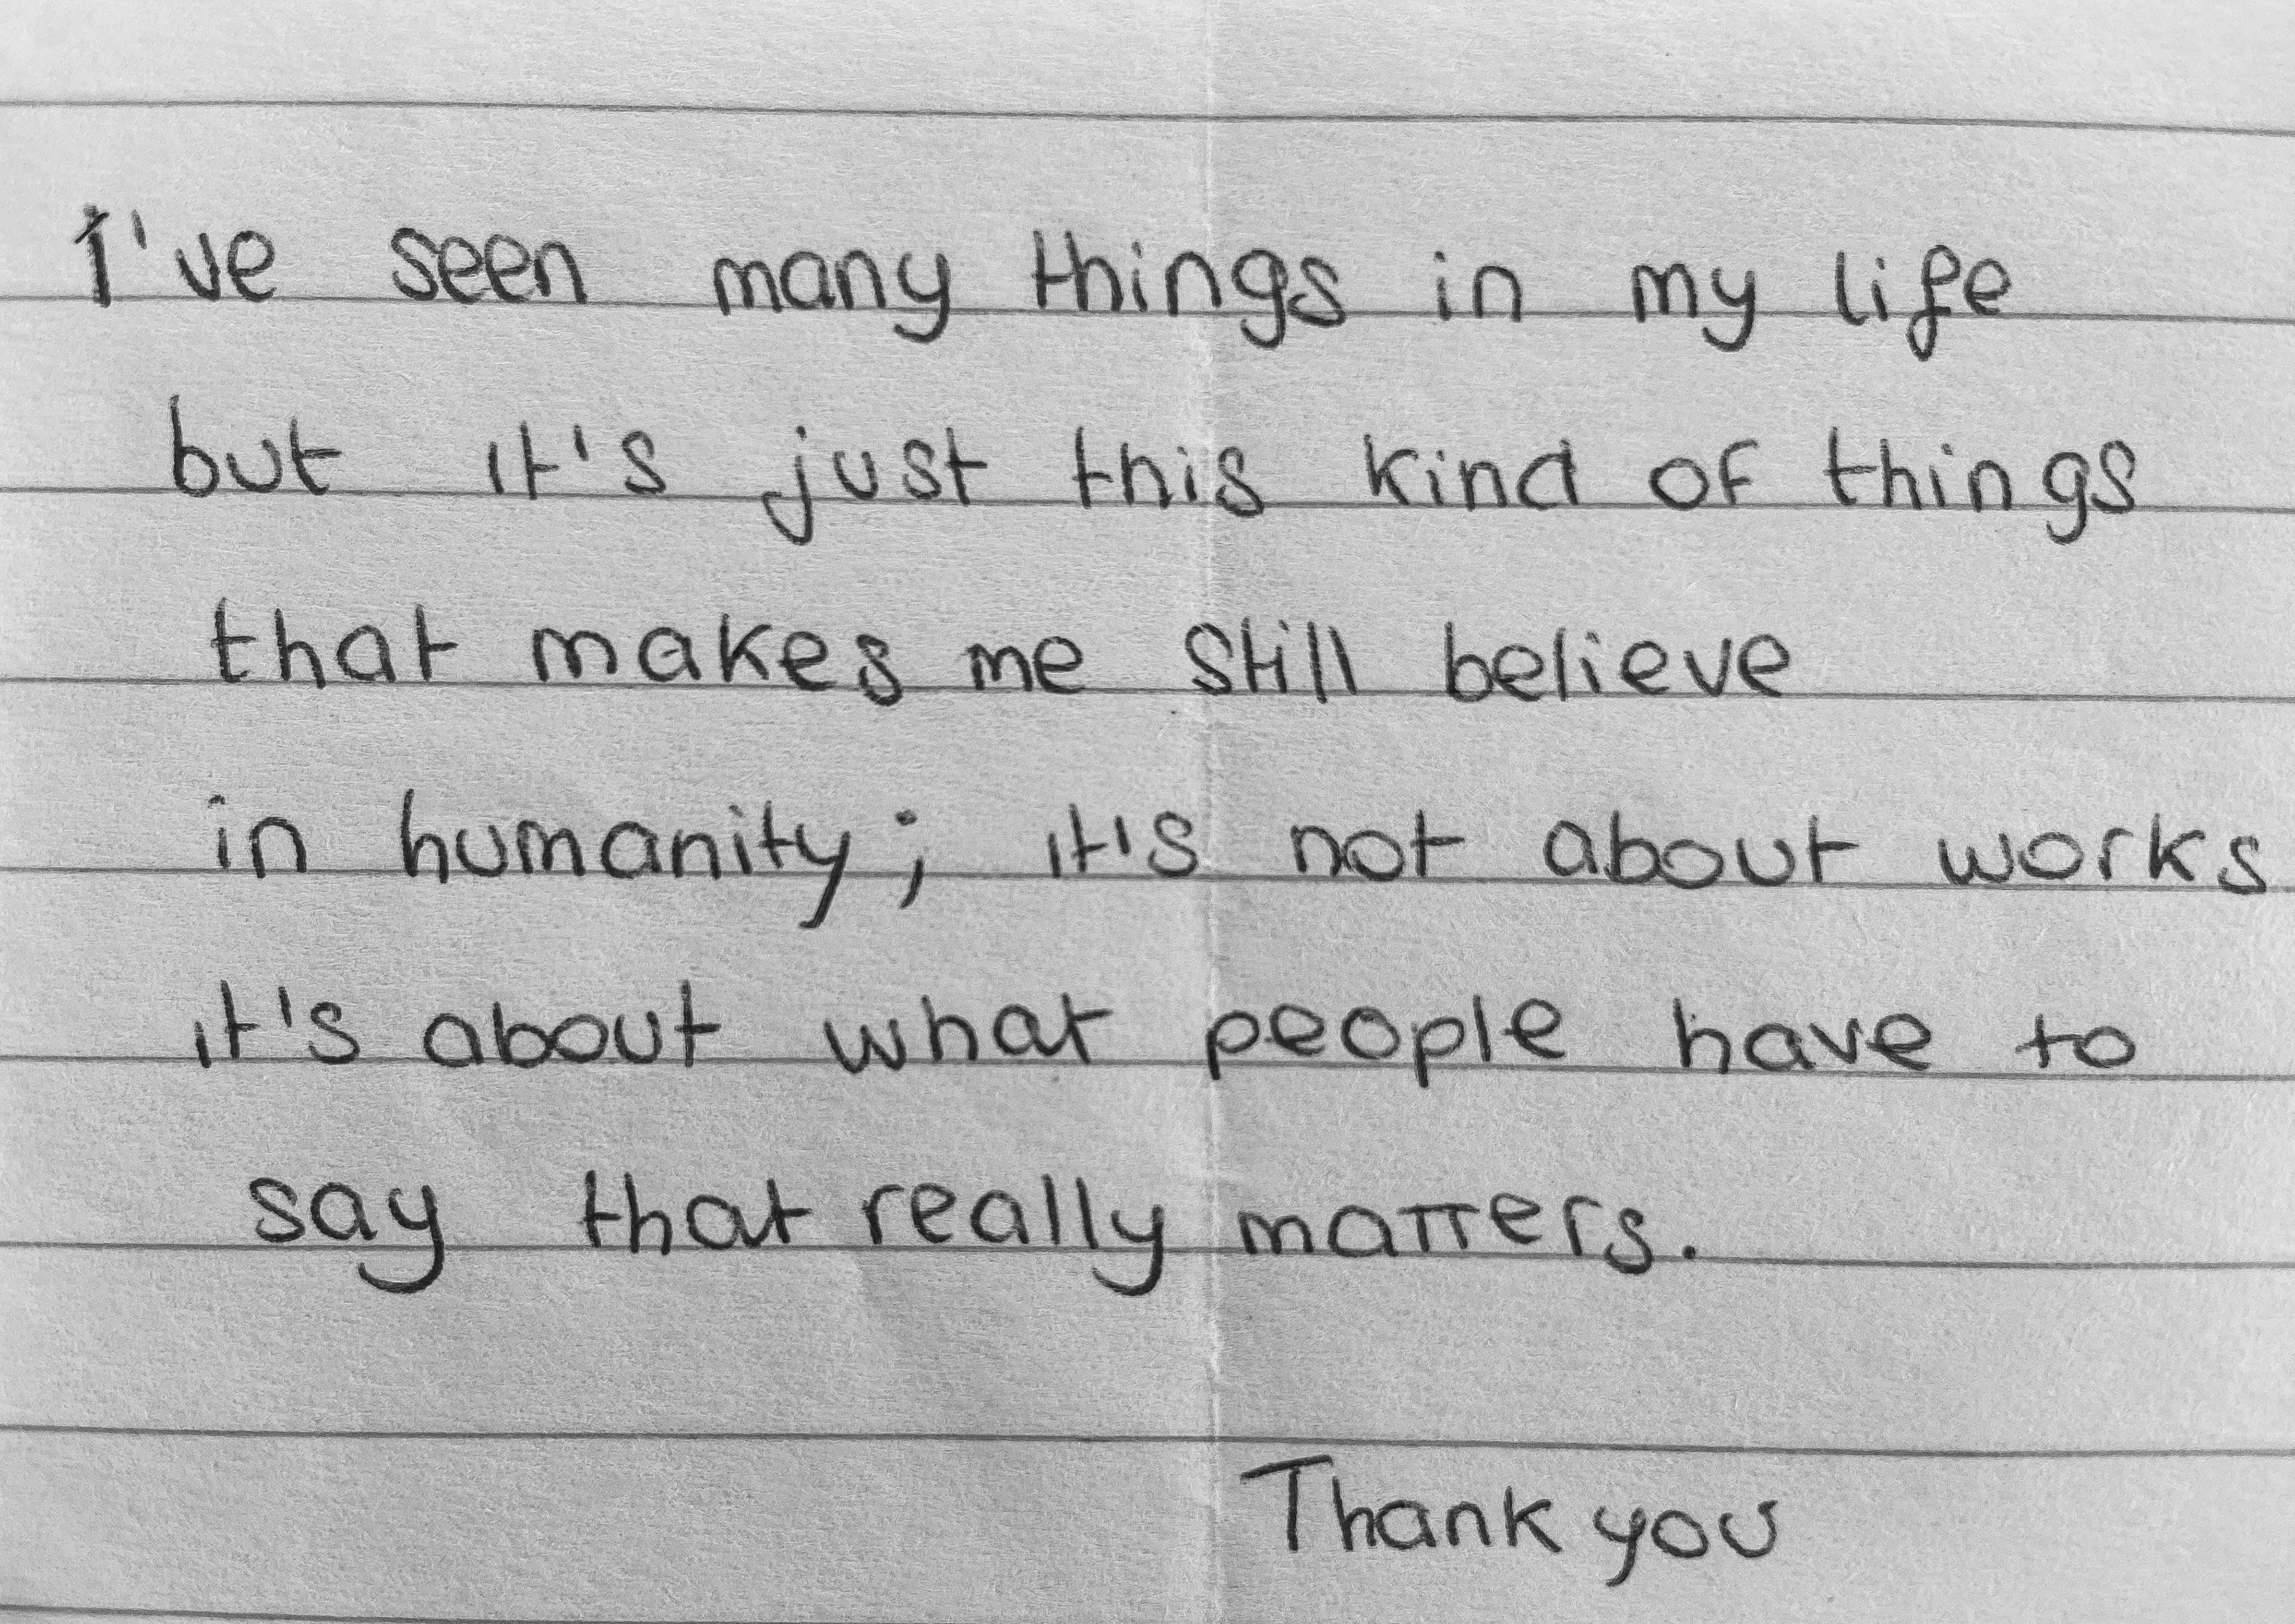 I've seen many things in my life
but it's just this kind of things
that makes me still believe
in humanity; it's not about works
it's about what people have to
say that really matters.
Thank you